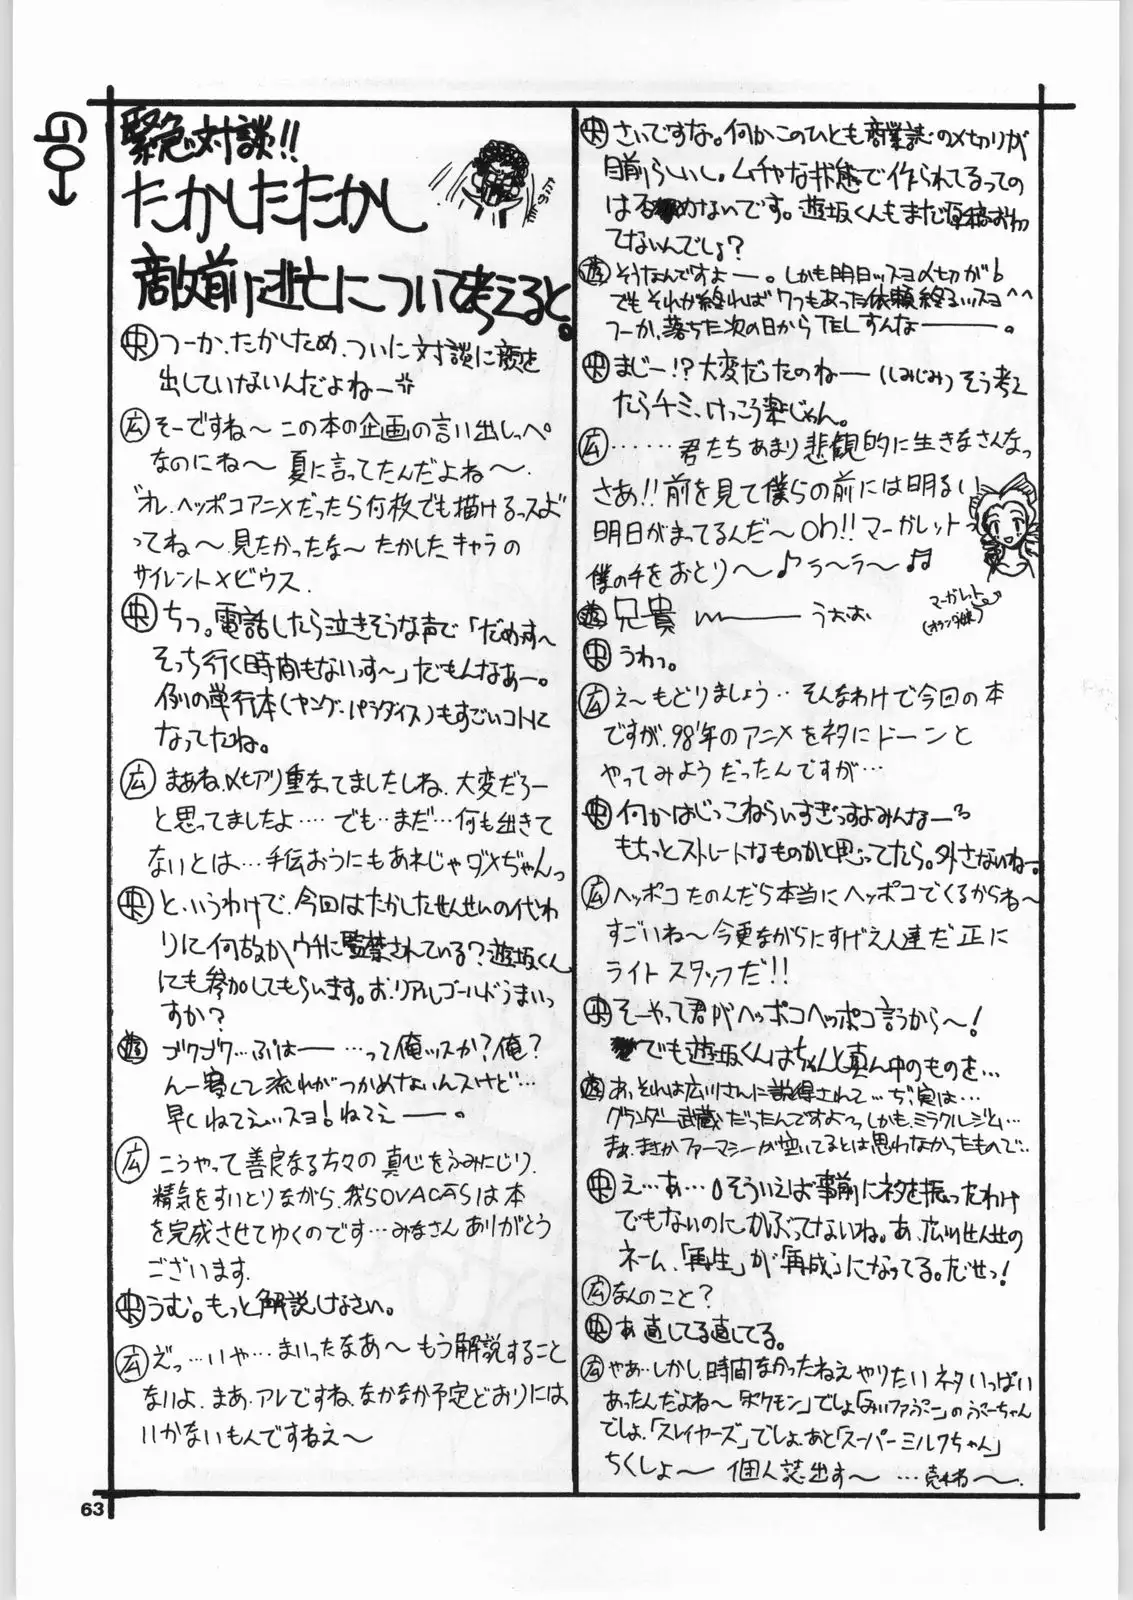 GO
緊急対談!!
たかしたたかし
敵前逃亡について考えると。
央 つーか、たかしため、ついに対談に顔を
出していないんだよねー
広 そーですね〜この本の企画の言い出しっぺ
なのにね〜 夏に言ってたんだよね〜.
"オレ、ヘッポコアニメだったら何枚でも描けるっスよ"
ってね〜見たかったな〜 たかした、キャラの
サイレントメビウス.
央 ちっ。電話したら泣きそうな声で「だめす〜
そっち行く時間もないっす〜」だもんなあー。
例の単行本(ヤング・パラダイス)もすごいコトに
なってたね。
広 まあね、〆切り重なってましたしね、大変だろー
と思ってましたよ‥‥でも‥まだ…何も出きて
ないとは…手伝おうにもあれじゃダメぢゃんっ
央 と、いうわけで、今回はたかしたせんせいの代わ
りに何故かウチに監禁されている?遊坂くん
にも参加してもらいます。お、リアルゴールドうまいっ
すか?
遊 ゴクゴク…ぷはー …って俺ッスか?俺?
んー寝てて流れがつかめないんスけど…
早くねてえ…スヨ!ねてえー。
広 こうやって善良なる方々の真心をふみにじり、
精気をすいとりながら、我らOVACASは本
を完成させてゆくのです…みなさんありがとう
ございます.
央 うむ。もっと解説しなさい。
広 えっ…いや…まいったなあ〜もう解説すること
ないよ、まあ、アレですね、なかなか予定どおりには
いかないもんですねえ〜
央 さいですな。何かこのひとも商業誌の〆切りが
目前らしいし。ムチャな状態で作られてるっての
は否めないです。遊坂くんもまだ原稿おわっ
てないんでしょ?
遊 そうなんですよー。しかも明日ッスヨ〆切が
でもそれが終れば7つもあった依頼終るッスヨ^^
つーか、落ちた次の日からTELすんなー。
央 まじー!?大変だったのねー(しみじみ)そう考え
たらチミ、けっこう楽じゃん。
広 ‥‥‥君たちあまり悲観的に生きなさんな
さあ!!前を見て僕らの前には明るい
明日がまってるんだ〜Oh!!マーガレット
僕の手をおとり〜♪ラ〜ラ〜♬
マーガレット
(オランダ娘)
遊 兄貴ー うおお
央 うわっ。
広 え〜もどりましょう‥そんなわけで今回の本
ですが、98'年のアニメをネタにドーンと
やってみようだったんですが…
央 何かはじっこねらいすぎっすよみんなー
もちっとストレートなものかと思ってたら。外さないねー
広 ヘッポコたのんだら本当にヘッポコでくるからね〜
すごいね〜今更ながらにすげえ人達だ正に
ライトスタッフだ!!
央 そーやって君がヘッポコヘッポコ言うから〜!
でも遊坂くんはちゃんと真ん中のものを…
遊 あ、それは広川さんに説得されて…ぢ、実は…
グランダー武蔵だったんですよ〜っしかも、ミラクルジム…
まぁ、まさかファーマシーが空いてるとは思わなかったもので…
央 え…あ…そういえば事前にネタを振ったわけ
でもないのにかぶってないね。あ、広川せんせの
ネーム、「再生」が「再成」になってる。だせっ!
広 なんのこと?
央 あ直してる直してる。
広 やあ…しかし、時間なかったねえやりたいネタいっぱい
あったんだよね〜「ポケモン」でしょ「みぃファぷー」のぷーちゃん
でしょ、「スレイヤーズ」でしょ、あと「スーパーミルクちゃん」
ちくしょ〜 個人誌出す〜
63